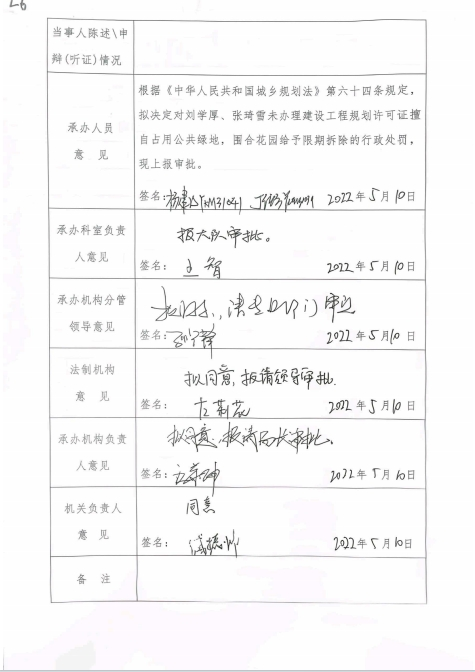 26
当事人陈述\申
辩(听证)情况
承办人员
意 见
根据《中华人民共和国城乡规划法》第六十四条规定，
拟决定对刘学厚、张琦雪未办理建设工程规划许可证擅
自占用公共绿地，围合花园给予限期拆除的行政处罚，
现上报审批。
签名: 2022年5月10日
承办科室负责
人意见
报大队审批。
签名: 王智 2022年5月10日
承办机构分管
领导意见
审批
签名: 2022年5月10日
法制机构
意 见
拟同意，报请领导审批.
签名: 2022年5月10日
承办机构负责
人意见
拟同意，报请局长审批。
签名: 2022年5月10日
机关负责人
意 见
同意
签名: 2022年5月10日
备 注